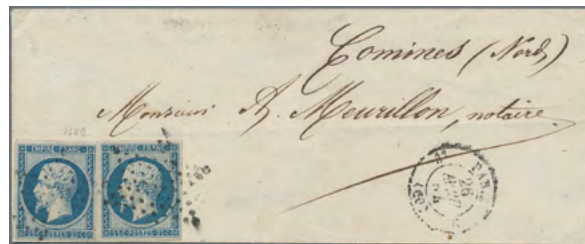 Comines (Nord)
Monsieur A. Meurillon, notaire
EMPIRE FRANC.
EMPIRE FRANC.
PARIS
26
(60)